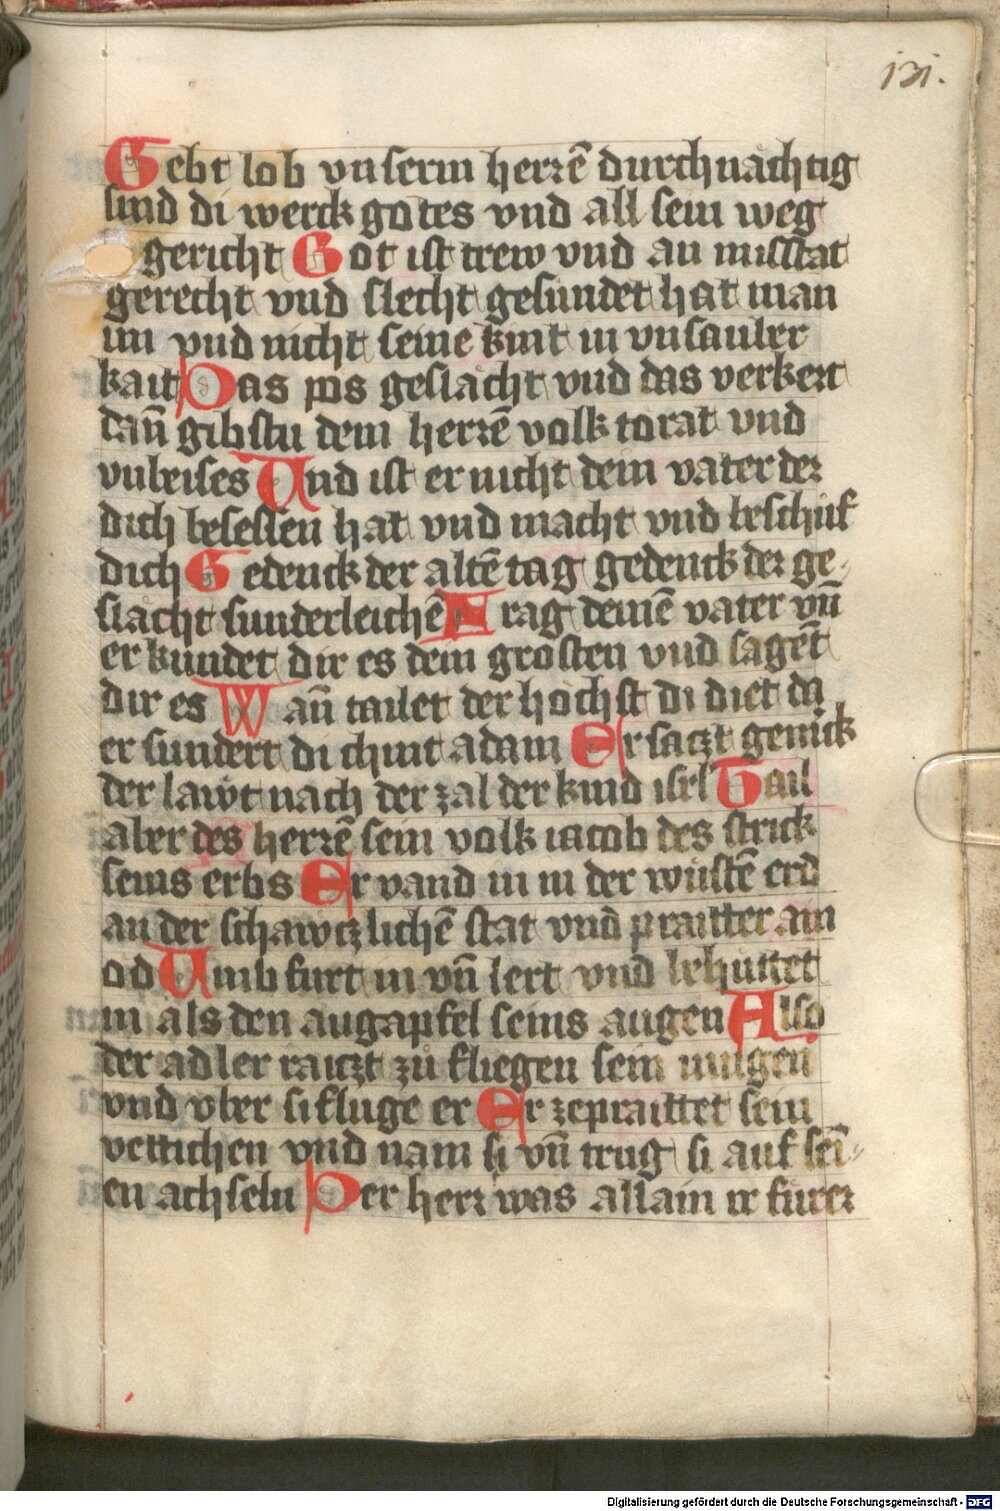 131.
Gebt lob vnserm herrē durchnächtig
sind di werck gotes vnd all sein weg
gericht Got ist trew vnd an misstat
gerecht vnd slecht gesundet hat man
im vnd nicht seine kint in vnsauber
kait Das pos geslächt vnd das verkert
dañ gibstu dem herrē volk torat vnd
vnbeises Und ist er nicht dein vater der
dich besessen hat vnd macht vnd beschüf
dich Gedenck der altē tag gedenck der ge-
slächt sunderleichē Frag deinē vater vñ
er kundet dir es dein grosten vnd sagēt
dir es Wañ tailet der höchst di diet da
er sundert di chint adam Er saczt gemck
der läwt nach der zal der kind isrl Tail
aber des herrē sein volk iacob des strick
seins erbs Er vand in in der wüstē erd
an der schäwczlichē stat vnd praitter ain
öd Umb furt in vñ lert vnd behuttet
in als den augapfel seins augen Also
der adler raiczt zů fliegen sein iungen
vnd vber si fluge er Er zepraittet sein
vettichen vnd nam si vñ trug si auf sei-
en achseln Der herr was allain ir fürer
Digitalisierung gefördert durch die Deutsche Forschungsgemeinschaft - DFG